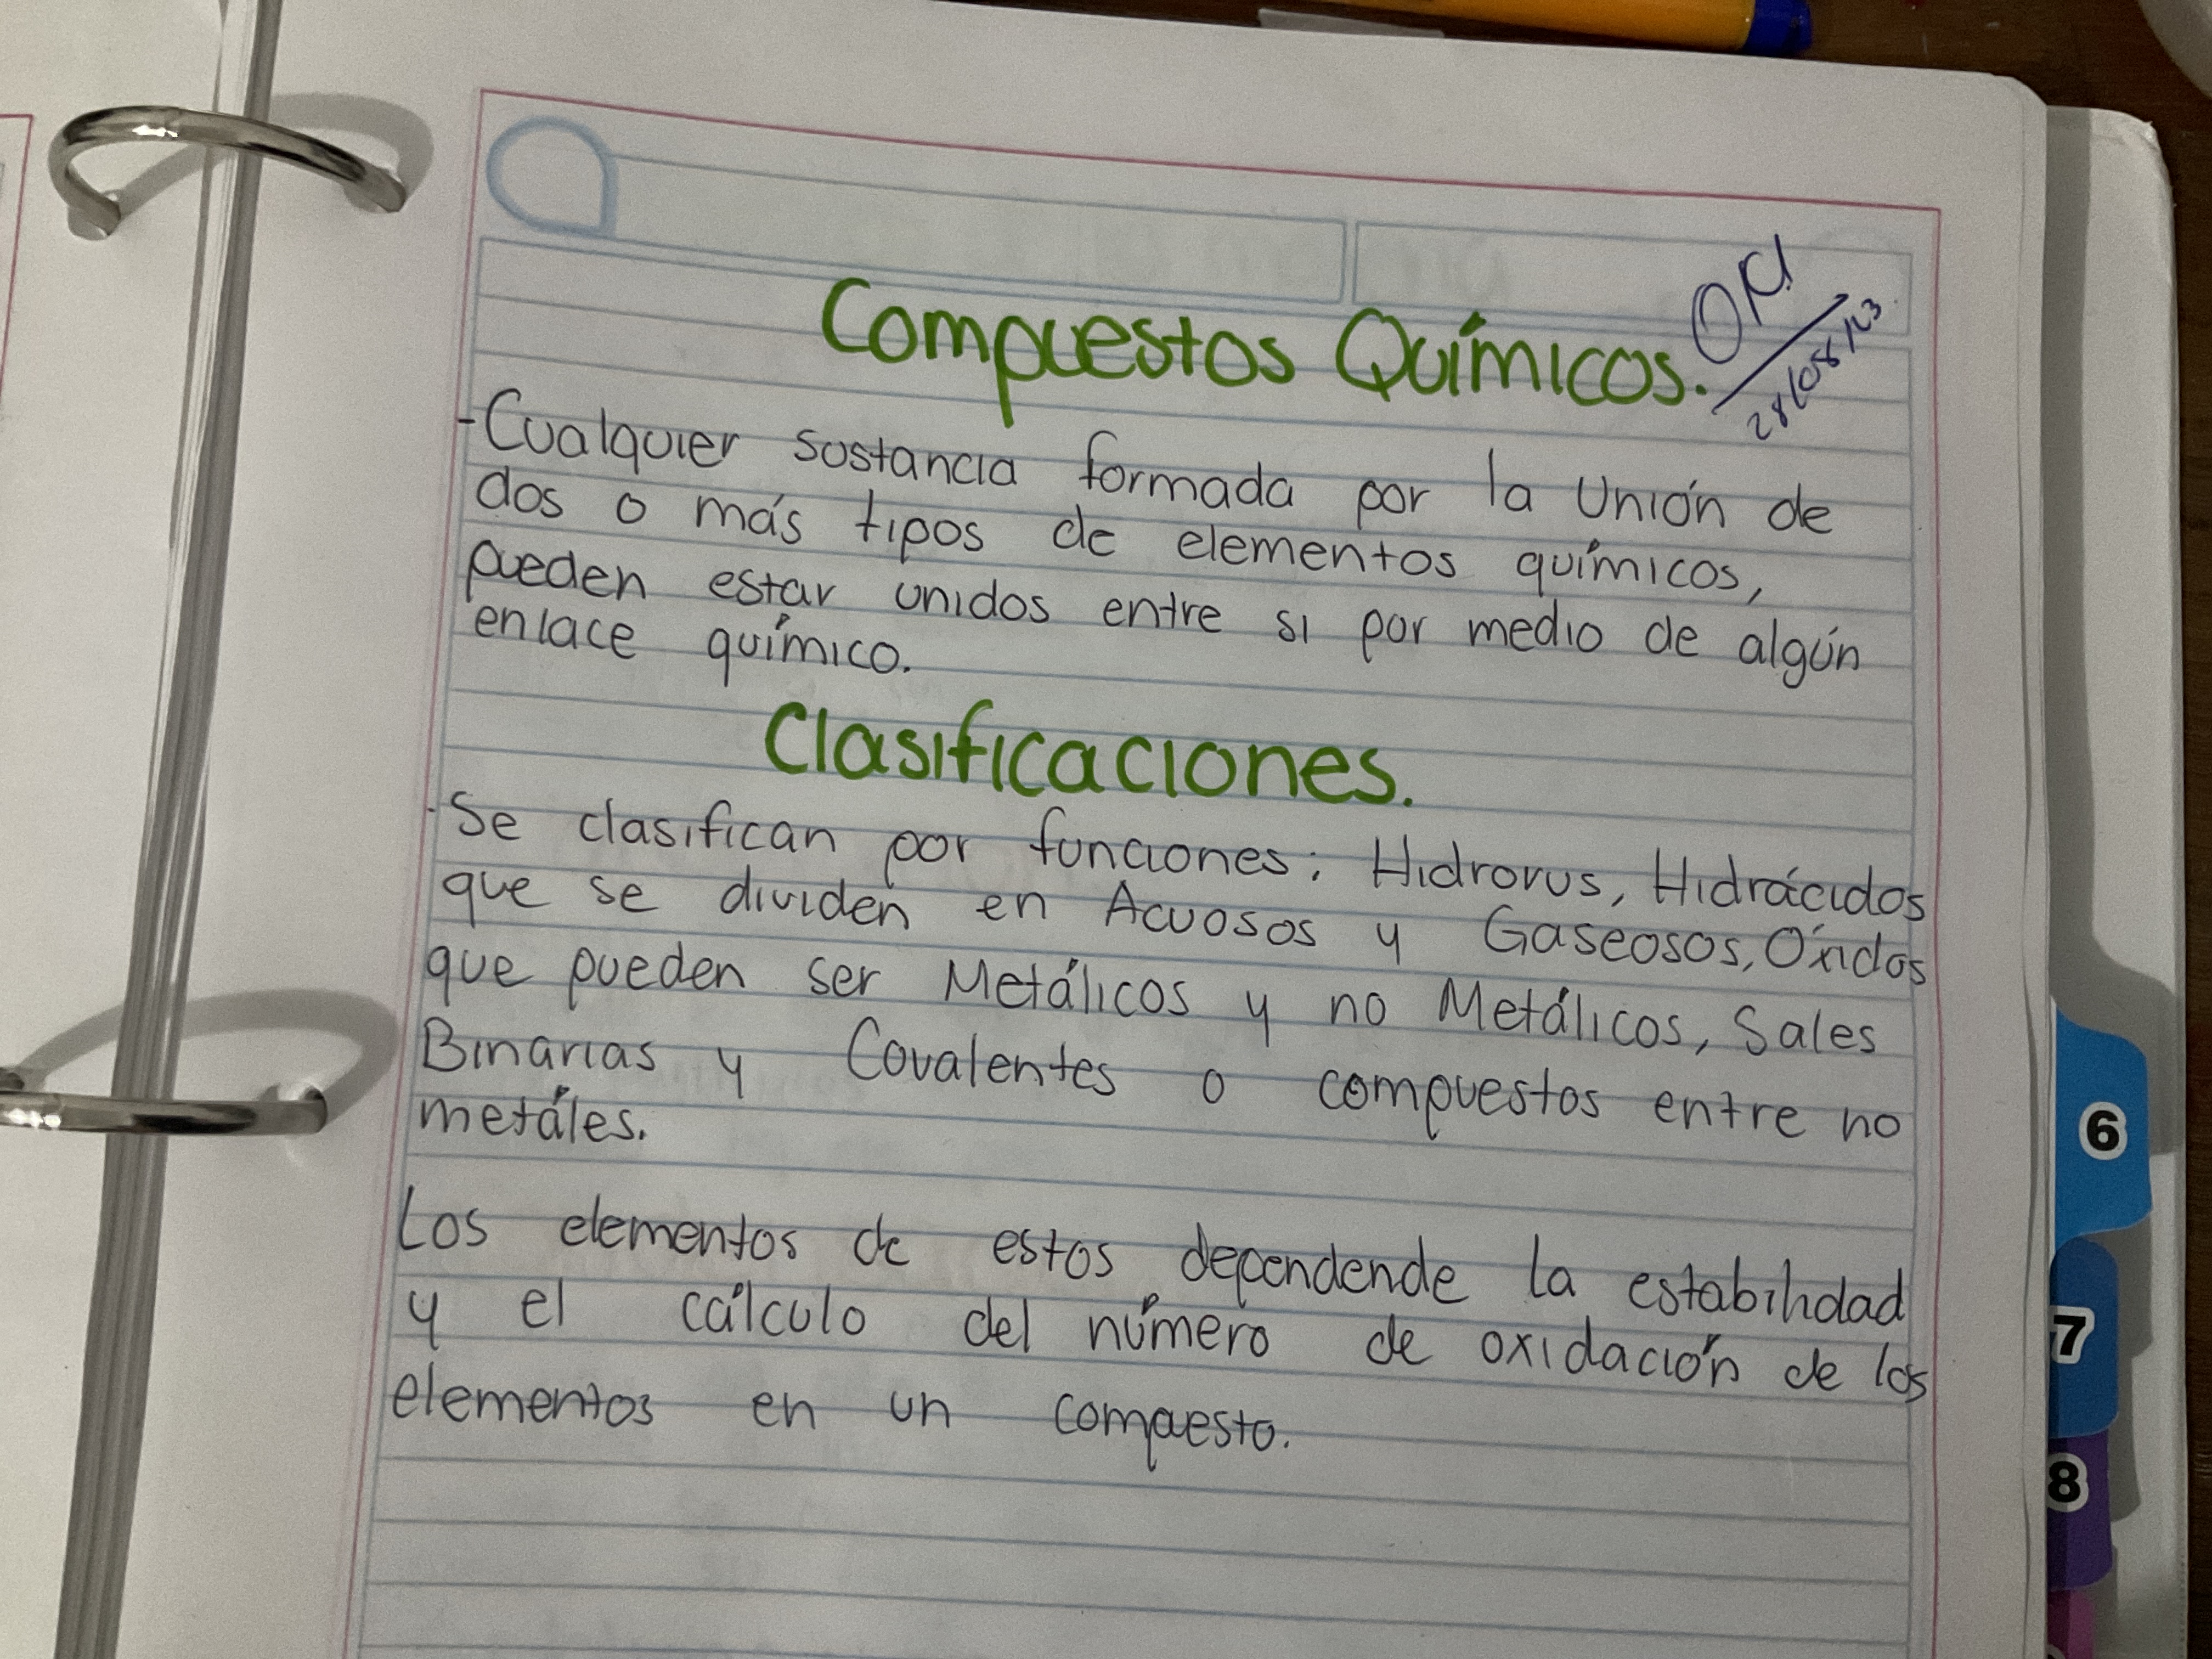 Compuestos Químicos.
28/08/23
-Cualquier sustancia formada por la Unión de
dos o más tipos de elementos químicos,
pueden estar unidos entre si por medio de algún
enlace químico.
Clasificaciones.
-Se clasifican por funciones: Hidrorus, Hidrácidos
que se dividen en Acuosos y Gaseosos, Óxidos
que pueden ser Metálicos y no Metálicos, Sales
Binarias y Covalentes o compuestos entre no
metáles.
Los elementos de estos dependende la estabilidad
y el cálculo del número de oxidación de los
elementos en un compuesto.
6
7
8